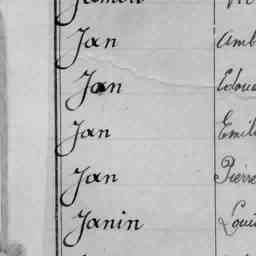 Jan Amb
Jan Edoua
Jan Emil
Jan Pierre
Janin Loui